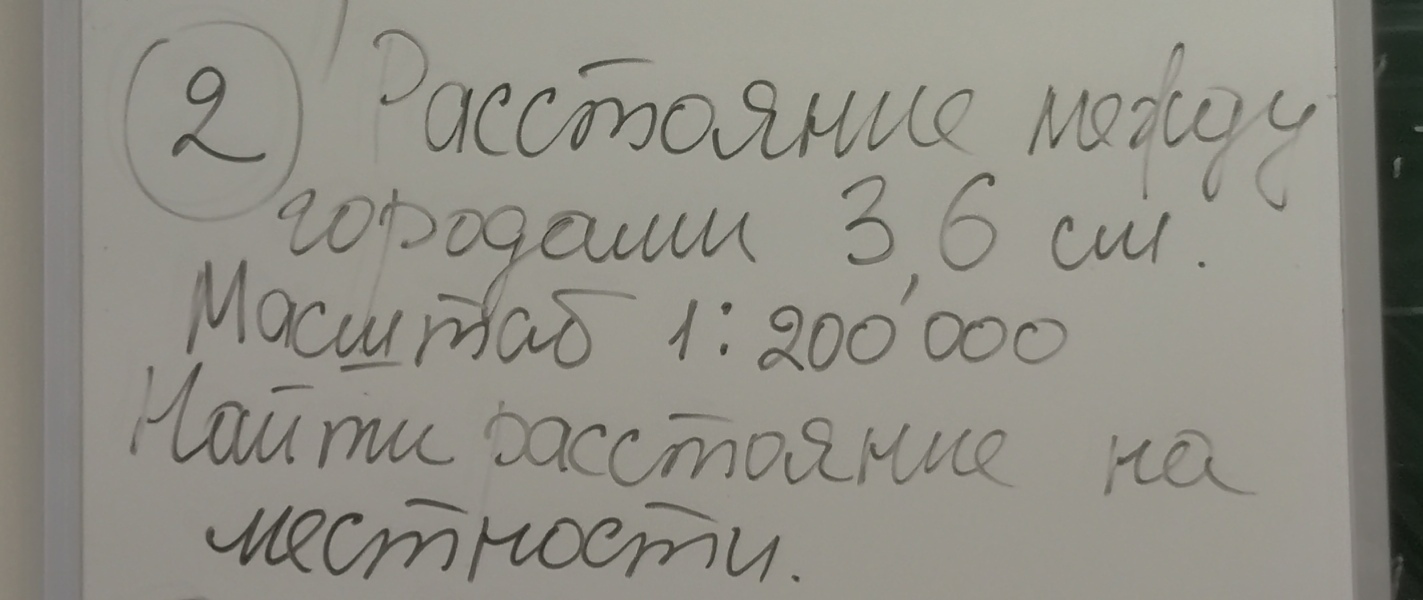 2 Расстояние между
городами 3,6 см.
Масштаб 1:200'000
Найти расстояние на
местности.